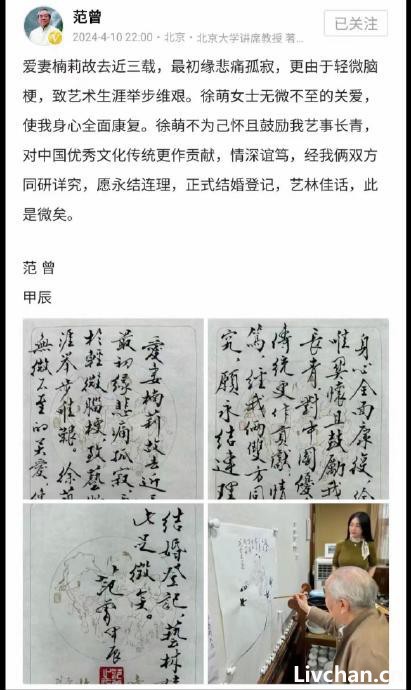 范曾
2024-4-10 22:00 · 北京 · 北京大学讲席教授 著...
已关注
爱妻楠莉故去近三载，最初缘悲痛孤寂，更由于轻微脑
梗，致艺术生涯举步维艰。徐萌女士无微不至的关爱，
使我身心全面康复。徐萌不为己怀且鼓励我艺事长青，
对中国优秀文化传统更作贡献，情深谊笃，经我俩双方
同研详究，愿永结连理，正式结婚登记，艺林佳话，此
是微矣。
范 曾
甲辰
愛妻楠莉故去近三
最初缘悲痛孤寂
於轻微腦梗，致藝
涯举步维艱。徐
無微不至的关爱
身心全面康復。
長青對中國優
傳統更作貢獻情
篤，經我俩雙方同
究，願永结連理
结婚登记，藝林
此是微矣。
范曾甲辰
Livchan.c